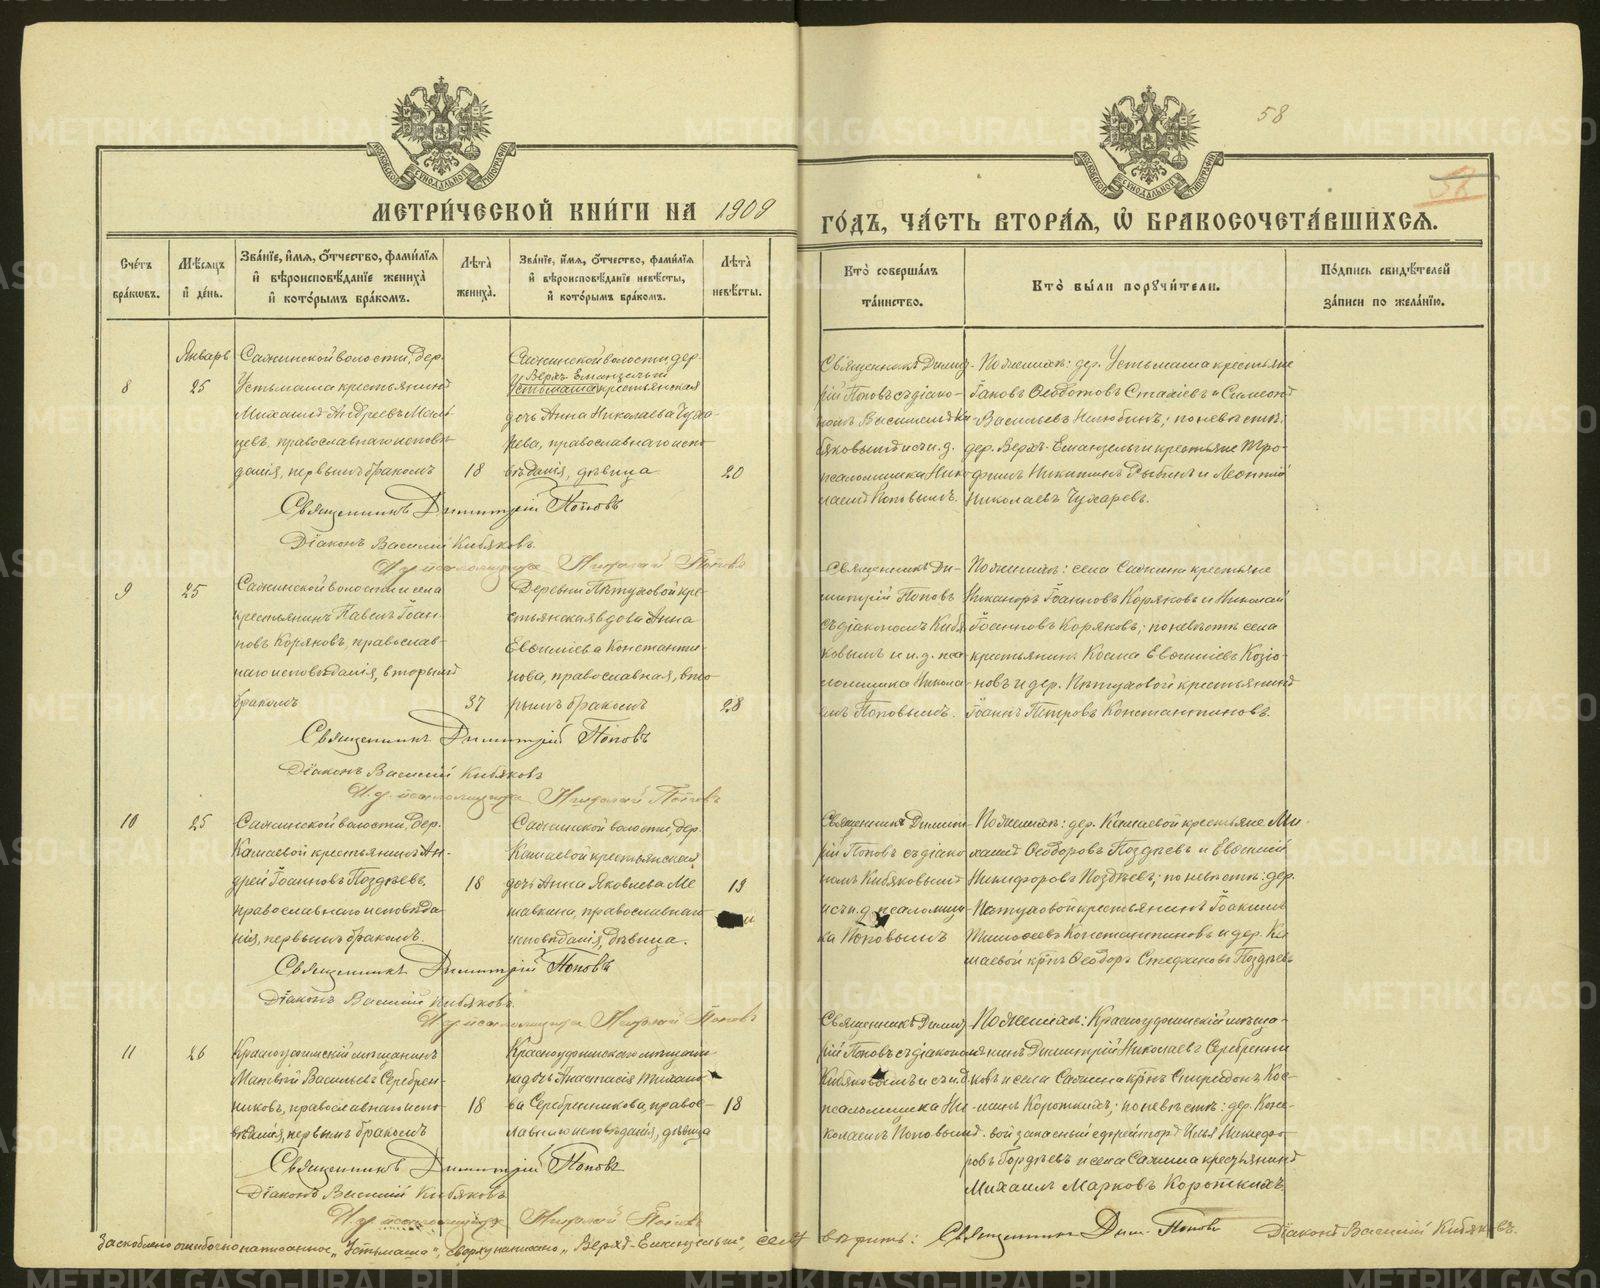 58
58
МЕТРИ́ЧЕСКОЙ КНИ́ГИ НА 1909
ГО́ДЪ, ЧА́СТЬ ВТОРА́Я, Ѽ БРАКОСОЧЕТА́ВШИХСЯ.
Сче́тъ бра́ковъ.
Мѣ́сяцъ и҆ де́нь.
Зва́нїе, и҆́мя, ѻ҆́тчество, фами́лїя
и҆ вѣроисповѣ́данїе жениха̀
и҆ кото́рымъ бра́комъ.
Лѣ́та
жениха̀.
Зва́нїе, и҆́мя, ѻ҆́тчество, фами́лїя
и҆ вѣроисповѣ́данїе невѣ́сты,
и҆ кото́рымъ бра́комъ.
Лѣ́та
невѣ́сты.
Кто̀ соверша́лъ
та́инство.
Кто̀ бы́ли порꙋчи́тели.
По́дпись свидѣ́телей
за́писи по жела́нїю.
8
Январь
25
Сажинской волости, дер.
Устьмаша крестьянинъ
Михаилъ Андреевъ
православнаго исповѣ-
данія, первымъ бракомъ
18
Сажинской волости дер.
Верхъ Еманзельги
Устьмаша крестьянская
дочь Анна Николаева Чуха-
рева, православнаго испо-
вѣданія, дѣвица
20
Священникъ Димит-
рій Поповъ съ діако-
номъ Василіемъ Ки-
бяковымъ и съ и. д.
псаломщика Нико-
лаемъ Поповымъ.
По женихѣ: дер. Устьмаша крестьяне
Іаковъ Ѳеодотовъ Стахіевъ и Симеонъ
Васильевъ Нелюбинъ; по невѣстѣ:
дер. Верхъ-Еманзельги крестьяне Тро-
фимъ Никитинъ Рыбинъ и Леонтій
Николаевъ Чухаревъ.
Священникъ Димитрій Поповъ
Діаконъ Василій Кибяковъ.
И. д. псаломщика Николай Поповъ
9
25
Сажинской волости и села
крестьянинъ Павелъ Іоан-
новъ Коряковъ, православ-
наго исповѣданія, вторымъ
бракомъ
37
Деревни Пѣтуховой кре-
стьянская вдова Анна
Евѳиміева Константи-
нова, православная, вто-
рымъ бракомъ
28
Священникъ Ди-
митрій Поповъ
съ діакономъ Кибя-
ковымъ и и. д. пса-
ломщика Никола-
емъ Поповымъ.
По женихѣ: села Сажина крестьяне
Никаноръ Іоанновъ Коряковъ и Николай
Іоанновъ Коряковъ; по невѣстѣ села
крестьянинъ Косма Евѳиміевъ Козіо-
новъ и дер. Пѣтуховой крестьянинъ
Іоаннъ Петровъ Константиновъ.
Священникъ Димитрій Поповъ
Діаконъ Василій Кибяковъ
И. д. псаломщика Николай Поповъ
10
25
Сажинской волости, дер.
Камаевой крестьянинъ Ан-
дрей Іоанновъ Поздѣевъ,
православнаго исповѣда-
нія, первымъ бракомъ.
18
Сажинской волости, дер.
Камаевой крестьянская
дочь Анна Яковлева Ме-
шавкина, православнаго
исповѣданія, дѣвица.
19
Священникъ Димит-
рій Поповъ съ діако-
номъ Кибяковымъ
и съ и. д. псаломщи-
ка Поповымъ
По женихѣ: дер. Камаевой крестьяне Ми-
хаилъ Ѳеодоровъ Поздѣевъ и Евѳимій
Никифоровъ Поздѣевъ; по невѣстѣ: дер.
Пѣтуховой крестьянинъ Іоакимъ
Тимоѳеевъ Константиновъ и дер. Ка-
маевой кр҃нъ Ѳеодоръ Стефановъ Поздѣевъ
Священникъ Димитрій Поповъ
Діаконъ Василій Кибяковъ.
И. д. псаломщика Николай Поповъ
11
26
Красноуфимскій мѣщанинъ
Матвѣй Васильевъ Серебрен-
никовъ, православнаго испо-
вѣданія, первымъ бракомъ
18
Красноуфимскаго мѣщани-
на дочь Анастасія Михаило-
ва Серебренникова, право-
славнаго исповѣданія, дѣвица
18
Священникъ Димит-
рій Поповъ съ діакономъ
Кибяковымъ и съ и. д.
псаломщика Ни-
колаемъ Поповымъ.
По женихѣ: Красноуфимскій мѣща-
нинъ Димитрій Николаевъ Серебренни-
ковъ и села Сажина кр҃нъ Спиридонъ Кос-
минъ Коротких; по невѣстѣ: дер. Кона-
вой запасный ефрейторъ Илья Никифо-
ровъ Гордѣевъ и села Сажина крестьянинъ
Михаилъ Марковъ Коротких.
Священникъ Димитрій Поповъ
Діаконъ Василій Кибяковъ
И. д. псаломщика Николай Поповъ
Заскоблено ошибочно написанное „Устьмаша", сверху написано „Верхъ-Еманзельги", сему вѣрить: Священникъ Дим. Поповъ Діаконъ Василій Кибяковъ.
METRIKI.GASO-URAL.RU